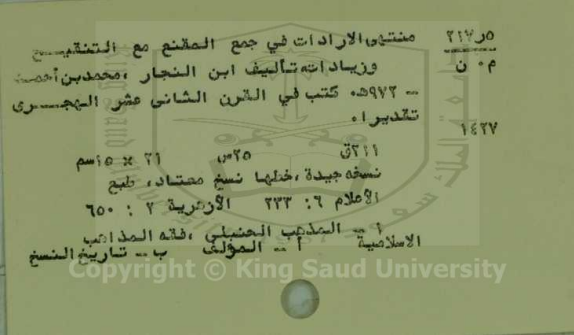 ٢١٧٫٥ منتهى الارادات في جمع المقنع مع التنقيح
م٠ن وزيادات، تأليف ابن النجار ،محمدبن أحمد
- ٩٧٢ه‍. كتب في القرن الثاني عشر الهجرى
تقديرا.
١٤٢٧
٢١١ق ٢٥س ٢١ × ١٥سم
نسخه جيدة ،خطها نسخ معتاد، طبع
الأعلام ٦: ٢٣٣ الأزهرية ٢ : ٦٥٠
١- المذهب الحنبلي ،فقه المذاهب
الاسلامية أ - المؤلف ب - تاريخ النسخ
Copyright © King Saud University